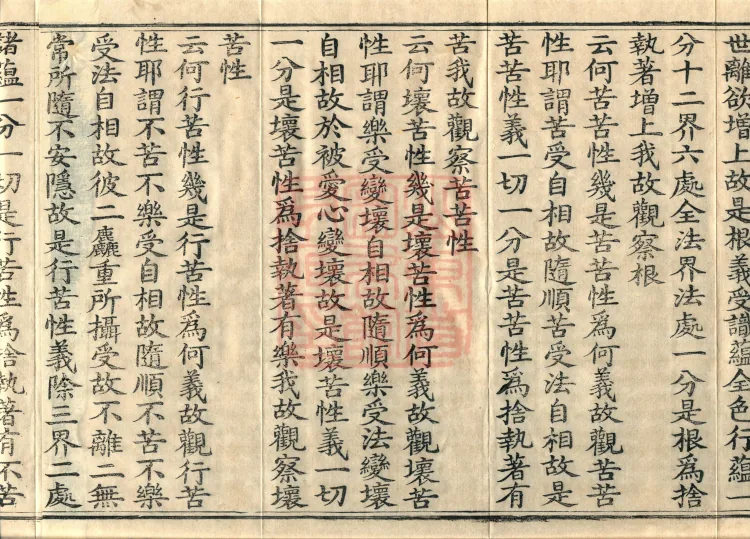 世離欲增上故是根義受識蘊全色行蘊一
分十二界六處全法界法處一分是根爲捨
執著增上我故觀察根
云何苦苦性幾是苦苦性爲何義故觀苦苦
性耶謂苦受自相故隨順苦受法自相故是
苦苦性義一切一分是苦苦性爲捨執著有
苦我故觀察苦苦性
云何壞苦性幾是壞苦性爲何義故觀壞苦
性耶謂樂受變壞自相故隨順樂受法變壞
自相故於彼愛心變壞故是壞苦性義一切
一分是壞苦性爲捨執著有樂我故觀察壞
苦性
云何行苦性幾是行苦性爲何義故觀行苦
性耶謂不苦不樂受自相故隨順不苦不樂
受法自相故彼二麤重所攝受故不離二無
常所隨不安隱故是行苦性義除三界二處
諸蘊一分一切是行苦性爲捨執著有不苦